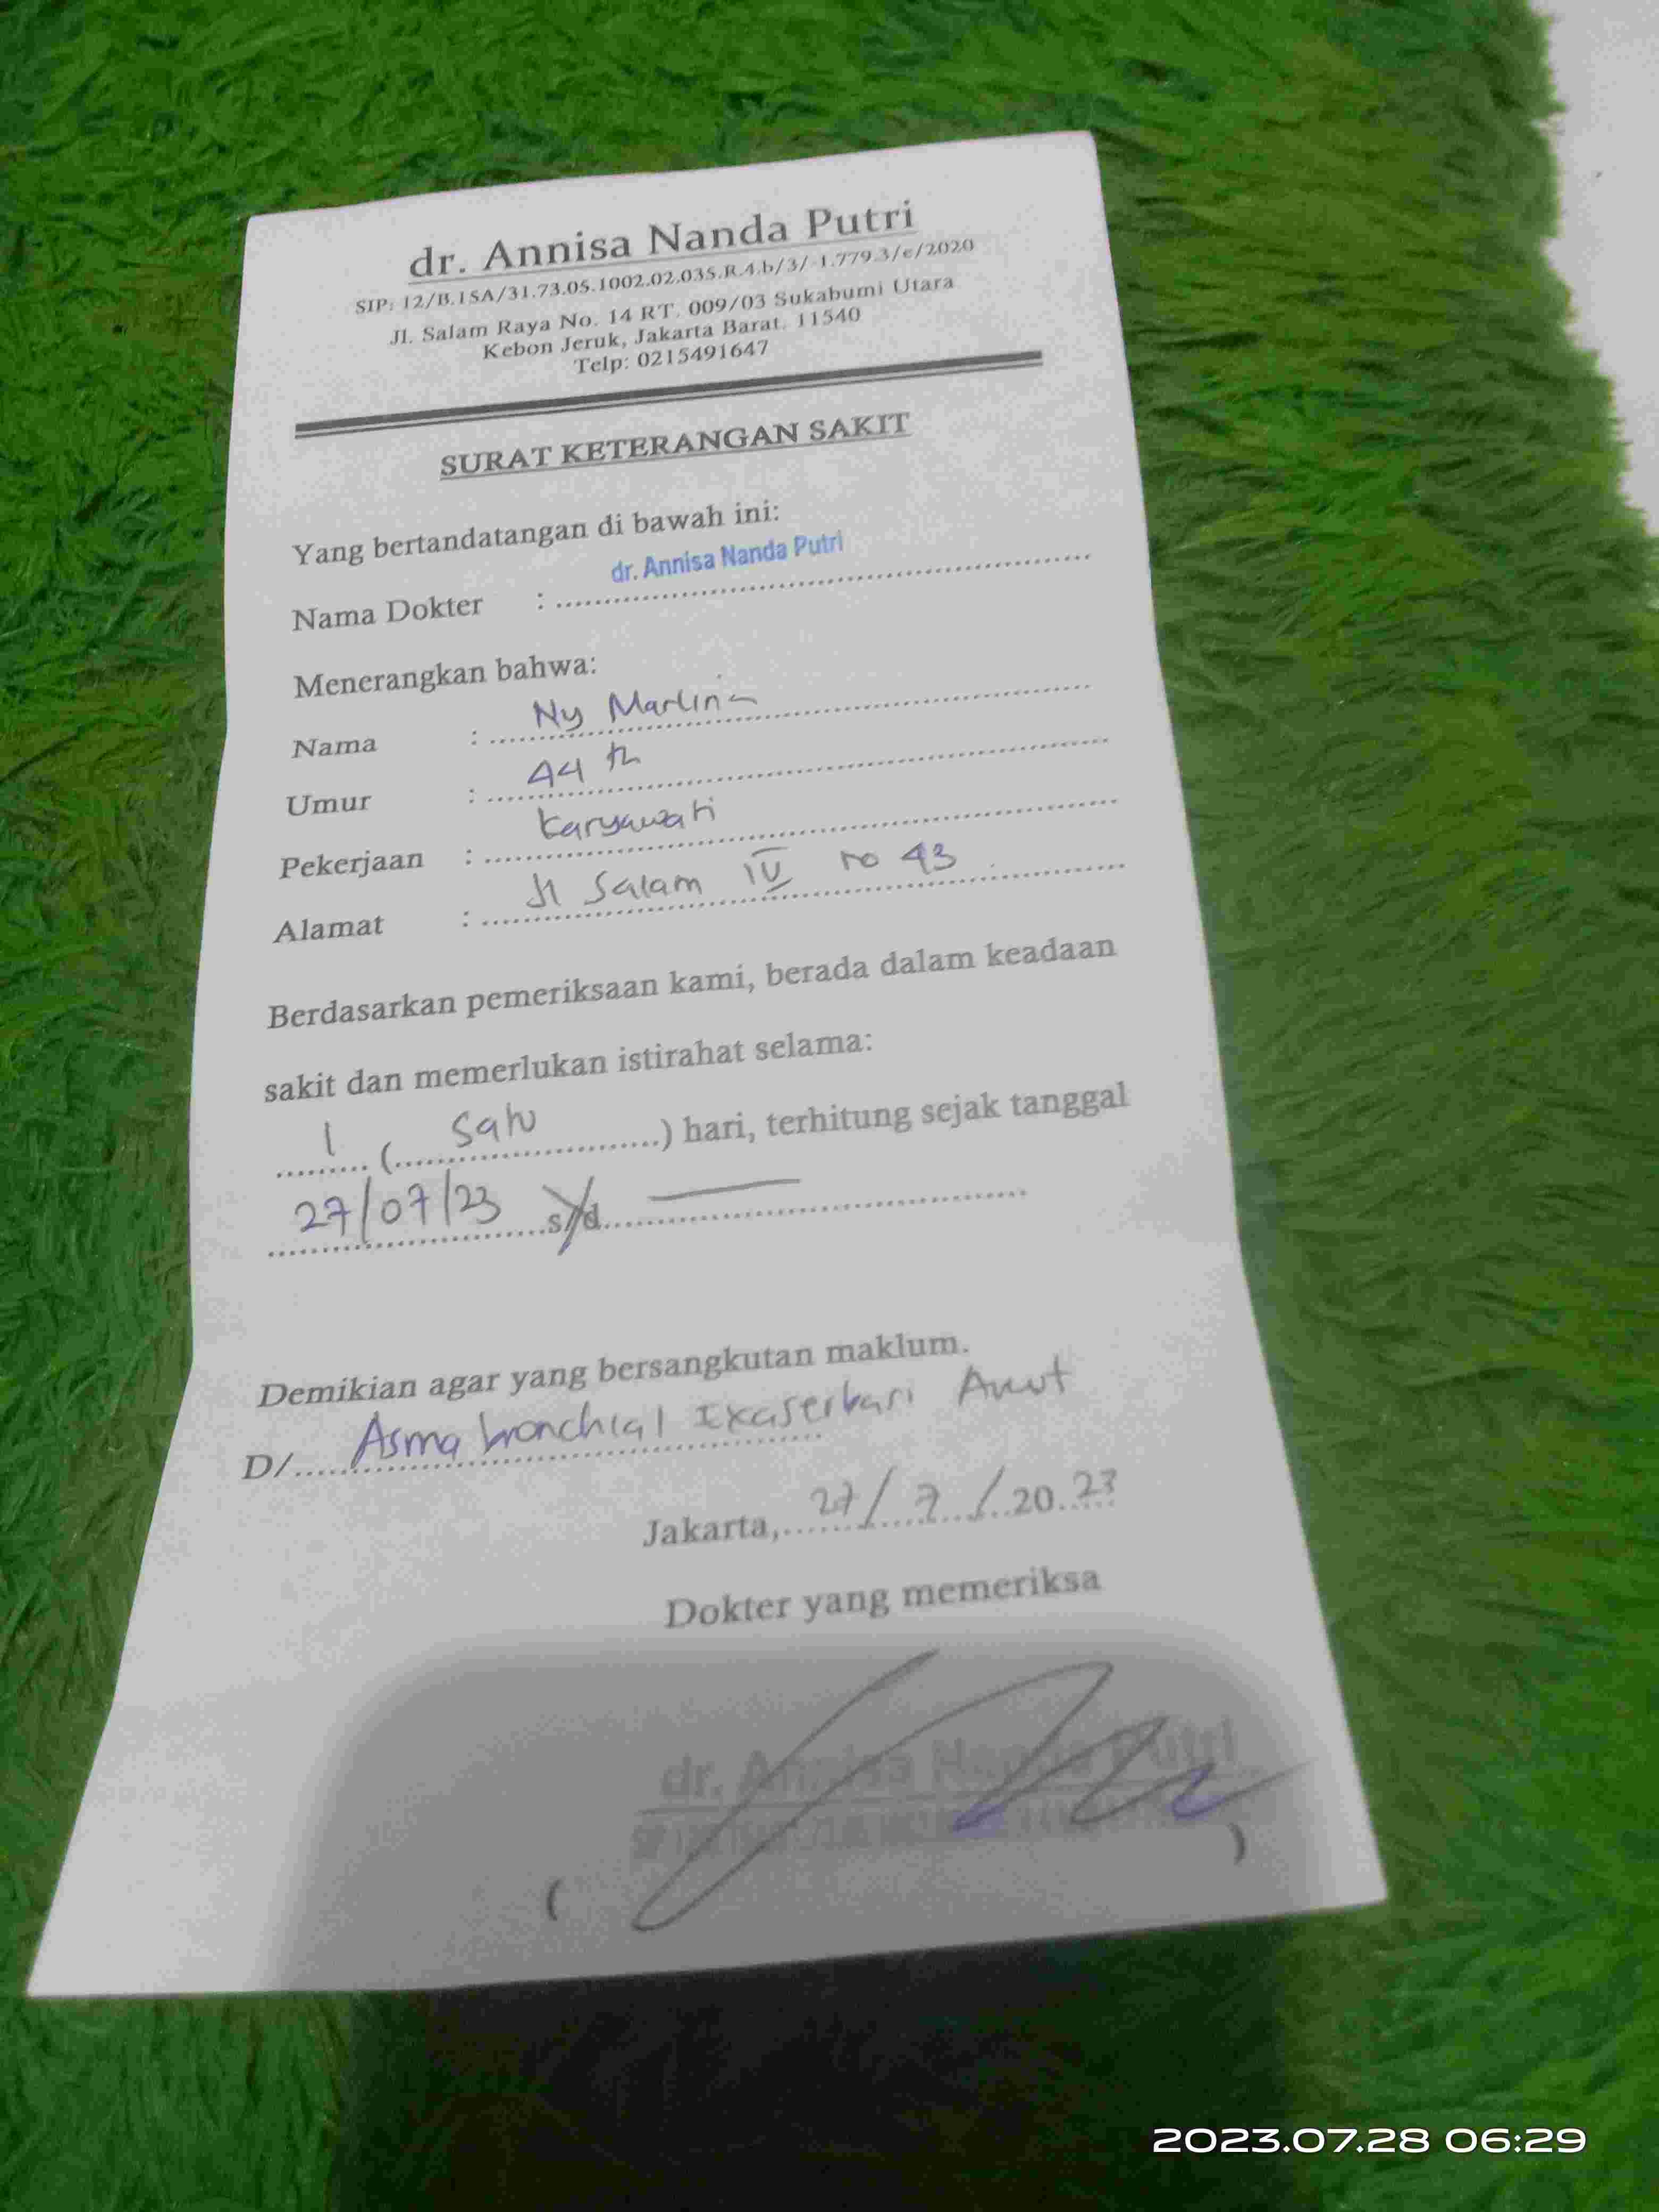 dr. Annisa Nanda Putri
SIP: 12/B.15A/31.73.05.1002.02.035.R.4.b/3/-1.779.3/e/2020
Jl. Salam Raya No. 14 RT. 009/03 Sukabumi Utara
Kebon Jeruk, Jakarta Barat. 11540
Telp: 0215491647
SURAT KETERANGAN SAKIT
Yang bertandatangan di bawah ini:
Nama Dokter : dr. Annisa Nanda Putri
Menerangkan bahwa:
Nama : Ny Marlina
Umur : 44 th
Pekerjaan : Karyawati
Alamat : Jl Salam IV no 43
Berdasarkan pemeriksaan kami, berada dalam keadaan
sakit dan memerlukan istirahat selama:
1 (satu) hari, terhitung sejak tanggal
27/07/23 s/d
Demikian agar yang bersangkutan maklum.
D/ Asma bronchial Exaserbasi Akut
Jakarta, 27/7/2023
Dokter yang memeriksa
dr. Annisa Nanda Putri
( )
2023.07.28 06:29